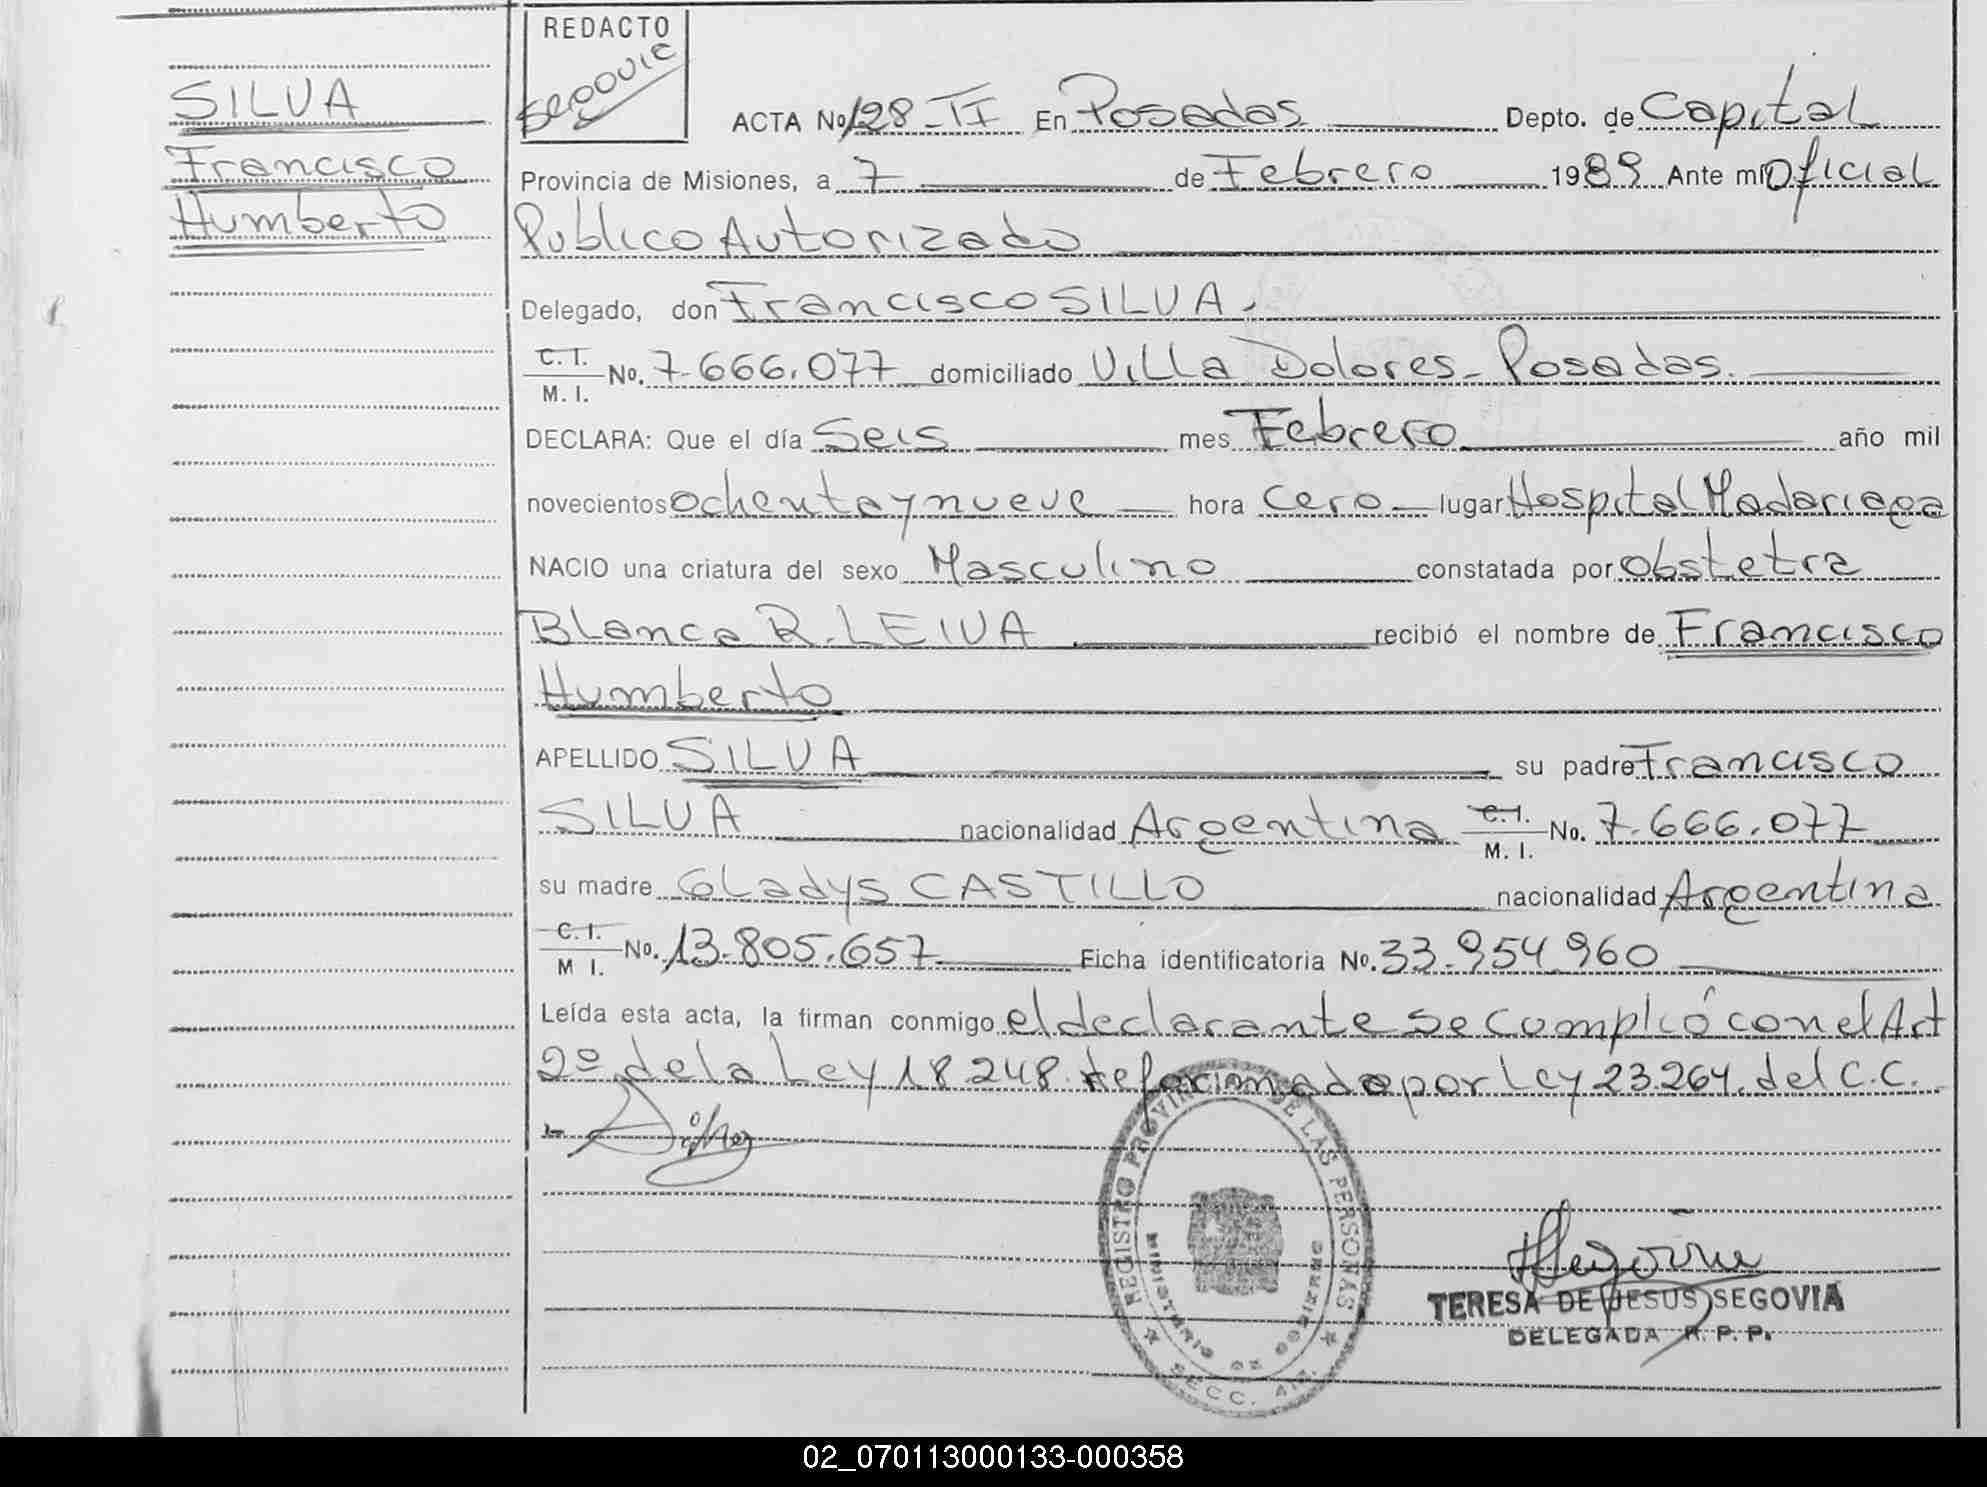 SILVA
Francisco
Humberto
REDACTO
Segovia
ACTA No 128-II En Posadas Depto. de Capital
Provincia de Misiones, a 7 de Febrero 1989 Ante mí Oficial
Publico Autorizado
Delegado, don Francisco SILVA.
C. I.
M. I. No. 7.666.077 domiciliado Villa Dolores - Posadas.
DECLARA: Que el día Seis mes Febrero año mil
novecientos ochenta y nueve hora Cero lugar Hospital Madariaga
NACIO una criatura del sexo Masculino constatada por obstetra
Blanca R. LEIVA recibió el nombre de Francisco
Humberto
APELLIDO SILVA su padre Francisco
SILVA nacionalidad Argentina C. I. M. I. No. 7.666.077
su madre Gladys CASTILLO nacionalidad Argentina
C. I.
M I. No. 13.805.657 Ficha identificatoria No. 33.954.960
Leída esta acta, la firman conmigo el declarante se cumplió con el Art
2º de la Ley 18.248 reformado por Ley 23.264. del C.C.
REGISTRO PROVINCIAL DE LAS PERSONAS
MINISTERIO DE GOBIERNO
SECC.
TERESA DE JESUS SEGOVIA
DELEGADA R. P. P.
02_070113000133-000358